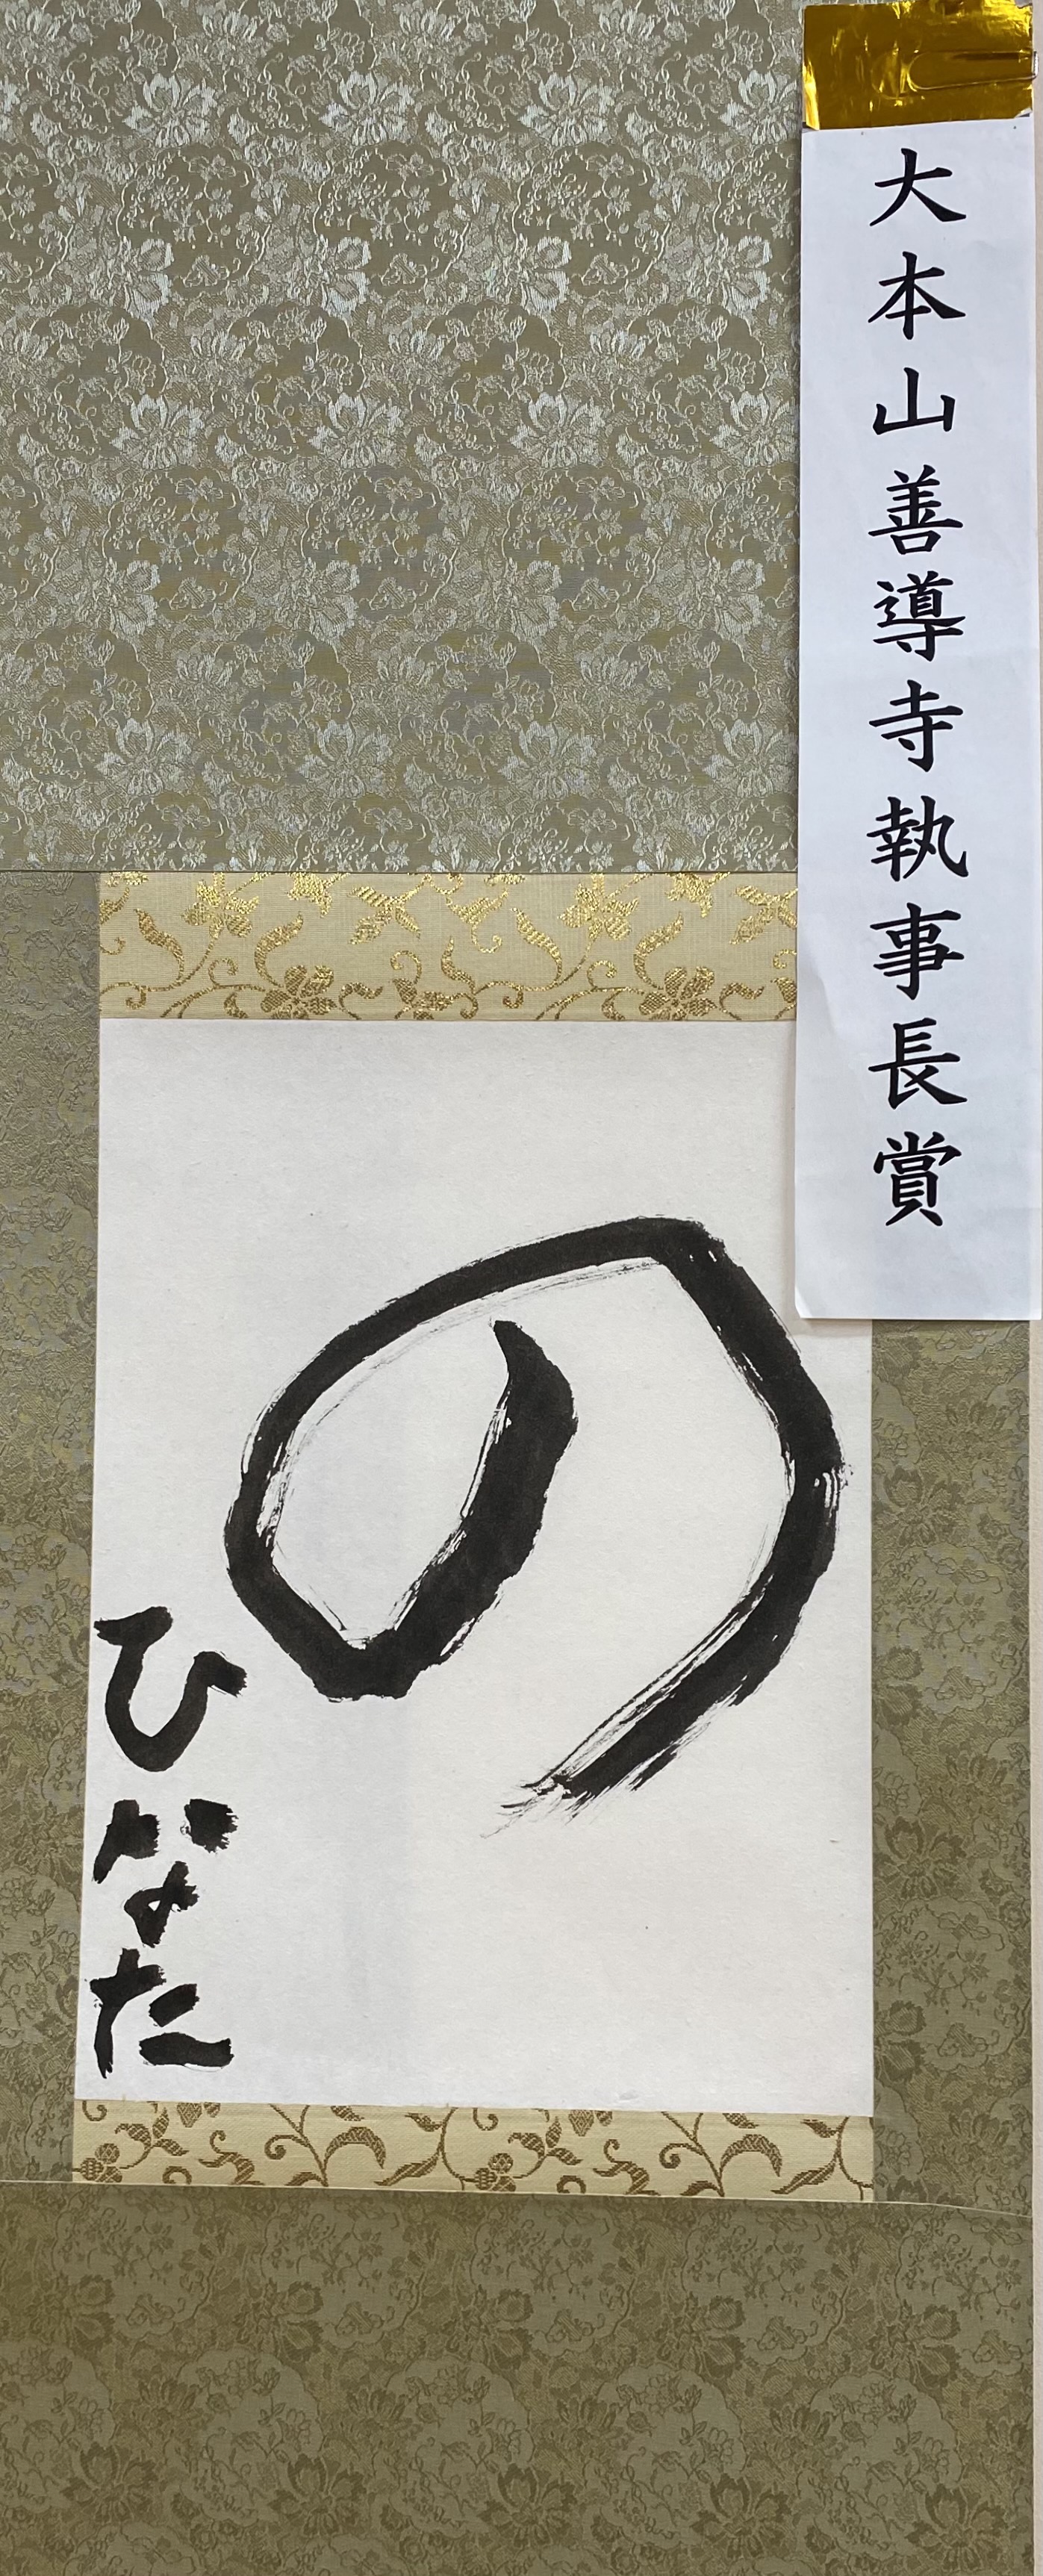 大本山善導寺執事長賞
の
ひなた